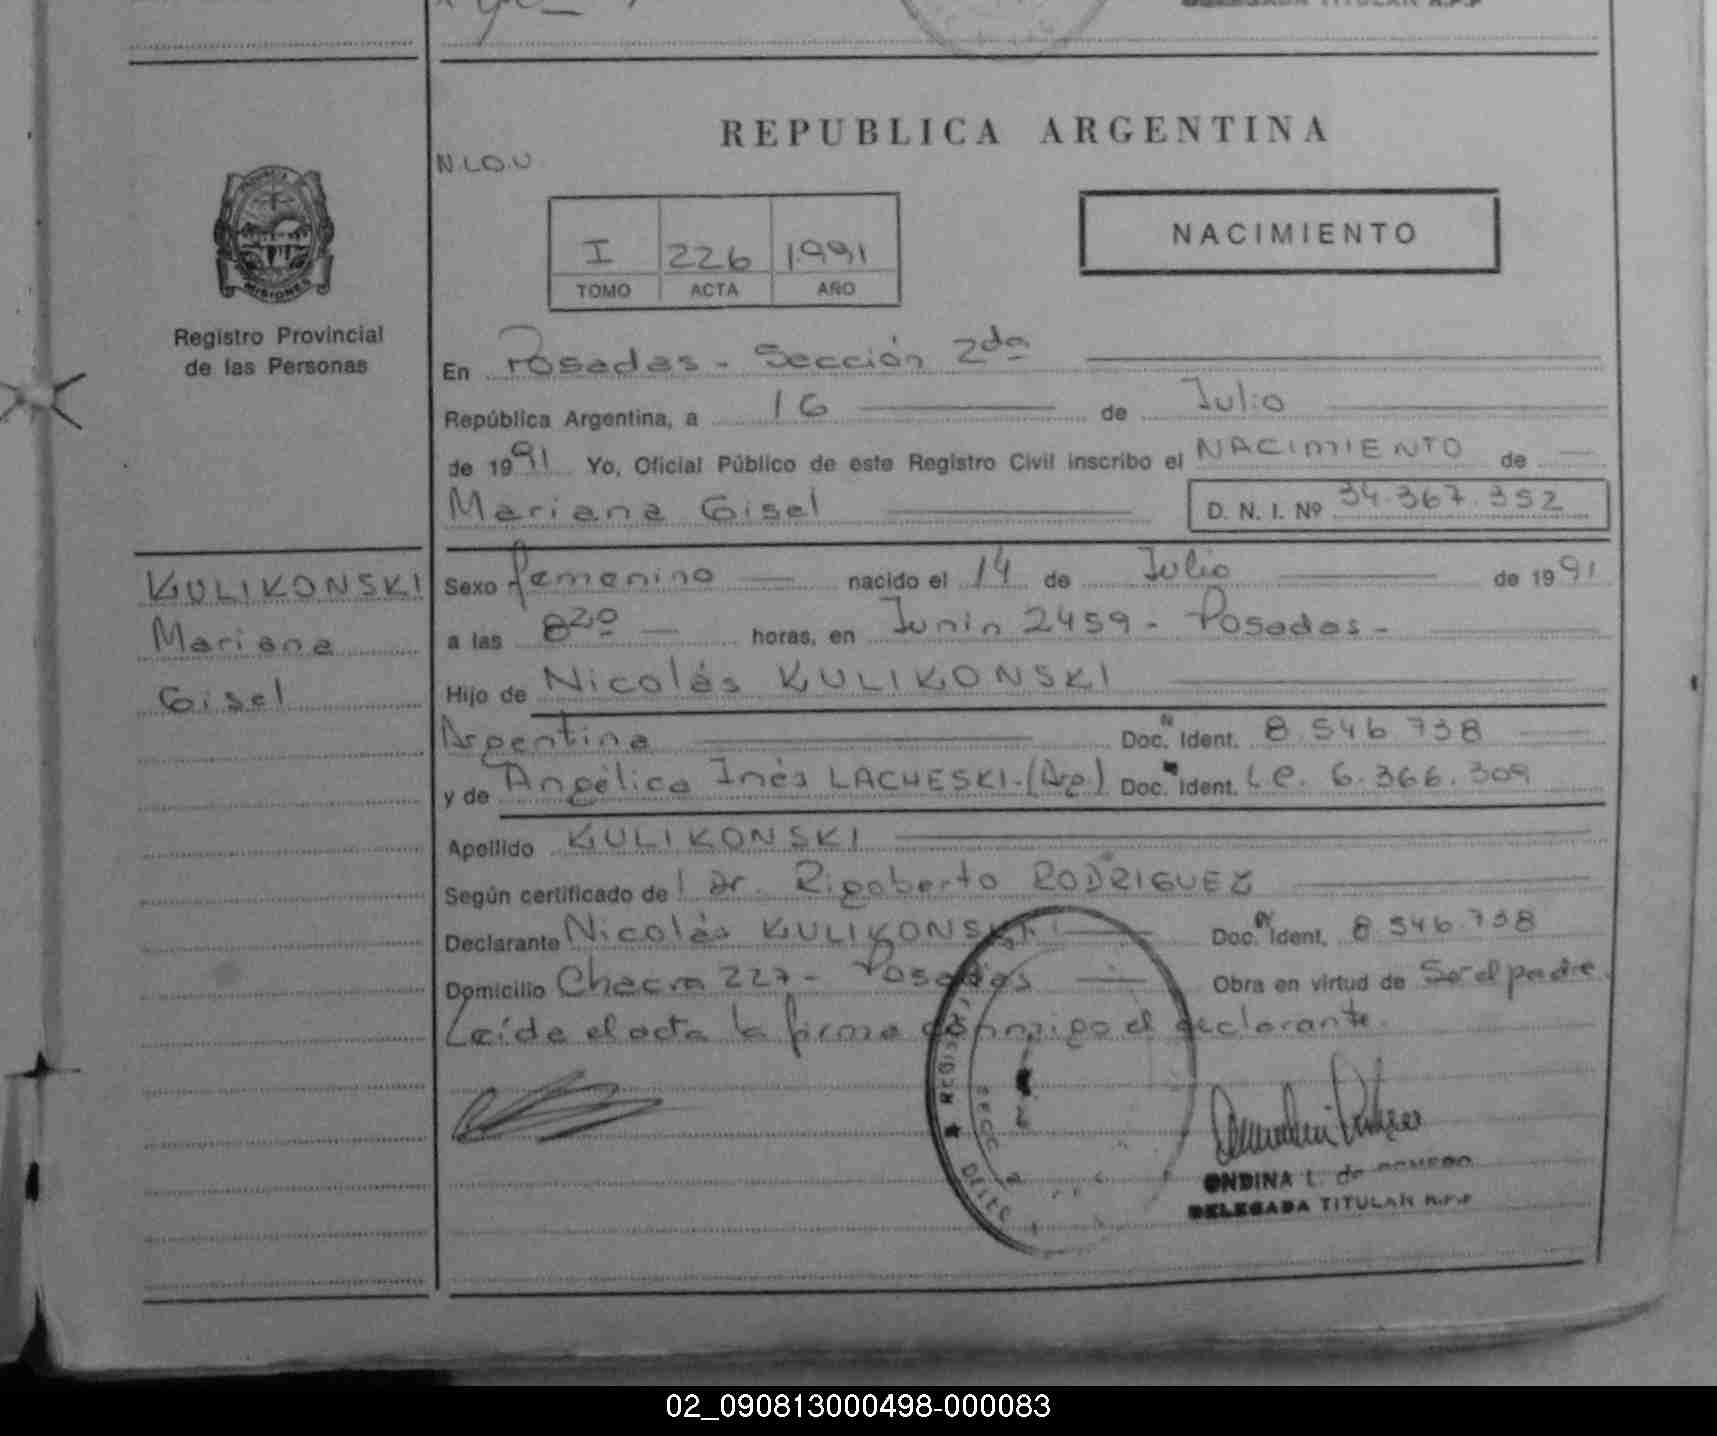 DELEGADA TITULAR R.P.P
REPUBLICA ARGENTINA
N.L.O.U
NACIMIENTO
I 226 1991
TOMO ACTA AÑO
MISIONES
Registro Provincial
de las Personas
En Posadas - Sección 2da
República Argentina, a 16 de Julio
de 1991 Yo, Oficial Público de este Registro Civil inscribo el NACIMIENTO de
Mariana Gisel D. N. I. Nº 34.367.352
KULIKONSKI
Mariana
Gisel
Sexo femenino nacido el 14 de Julio de 1991
a las 8 20 horas, en Junin 2459 - Posadas -
Hijo de Nicolás KULIKONSKI
Argentina Doc. Ident. 8 546 738
y de Angélica Inés LACHESKI - (Arg) Doc. Ident. L.C. 6.366.309
Apellido KULIKONSKI
Según certificado de Dr. Rigoberto RODRIGUEZ
Declarante Nicolás KULIKONSKI Doc. Ident. 8 546.738
Domicilio Chacra 227 - Posadas Obra en virtud de Ser el padre.
Leída el acta la firma conmigo el declarante.
ONDINA L. de ROMERO
DELEGADA TITULAR R.P.P
02_090813000498-000083